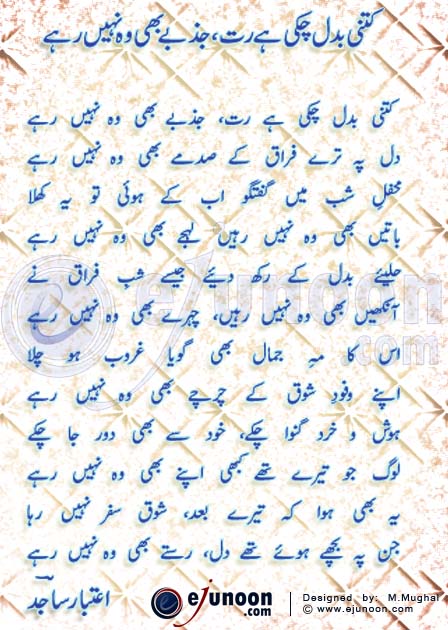 کتنی بدل چکی ہے رت، جذبے بھی وہ نہیں رہے
کتنی بدل چکی ہے رت، جذبے بھی وہ نہیں رہے
دل پہ ترے فراق کے صدمے بھی وہ نہیں رہے
محفلِ شب میں گفتگو اب کے ہوئی تو یہ کھلا
باتیں بھی وہ نہیں رہیں لہجے بھی وہ نہیں رہے
حلیئے بدل کے رکھ دیئے جیسے شب فراق نے
آنکھیں بھی وہ نہیں رہیں، چہرے بھی وہ نہیں رہے
اس کا مہِ جمال بھی گویا غروب ہو چلا
اپنے وفودِ شوق کے چرچے بھی وہ نہیں رہے
ہوش و خرد گنوا چکے، خود سے بھی دور جا چکے
لوگ جو تیرے تھے کبھی اپنے بھی وہ نہیں رہے
یہ بھی ہوا کہ تیرے بعد، شوق سفر نہیں رہا
جن پہ بچھے ہوئے تھے دل، رستے بھی وہ نہیں رہے
اعتبار ساجد
ejunoon.com
Designed by: M.Mughal
© www.ejunoon.com
ejunoon.com